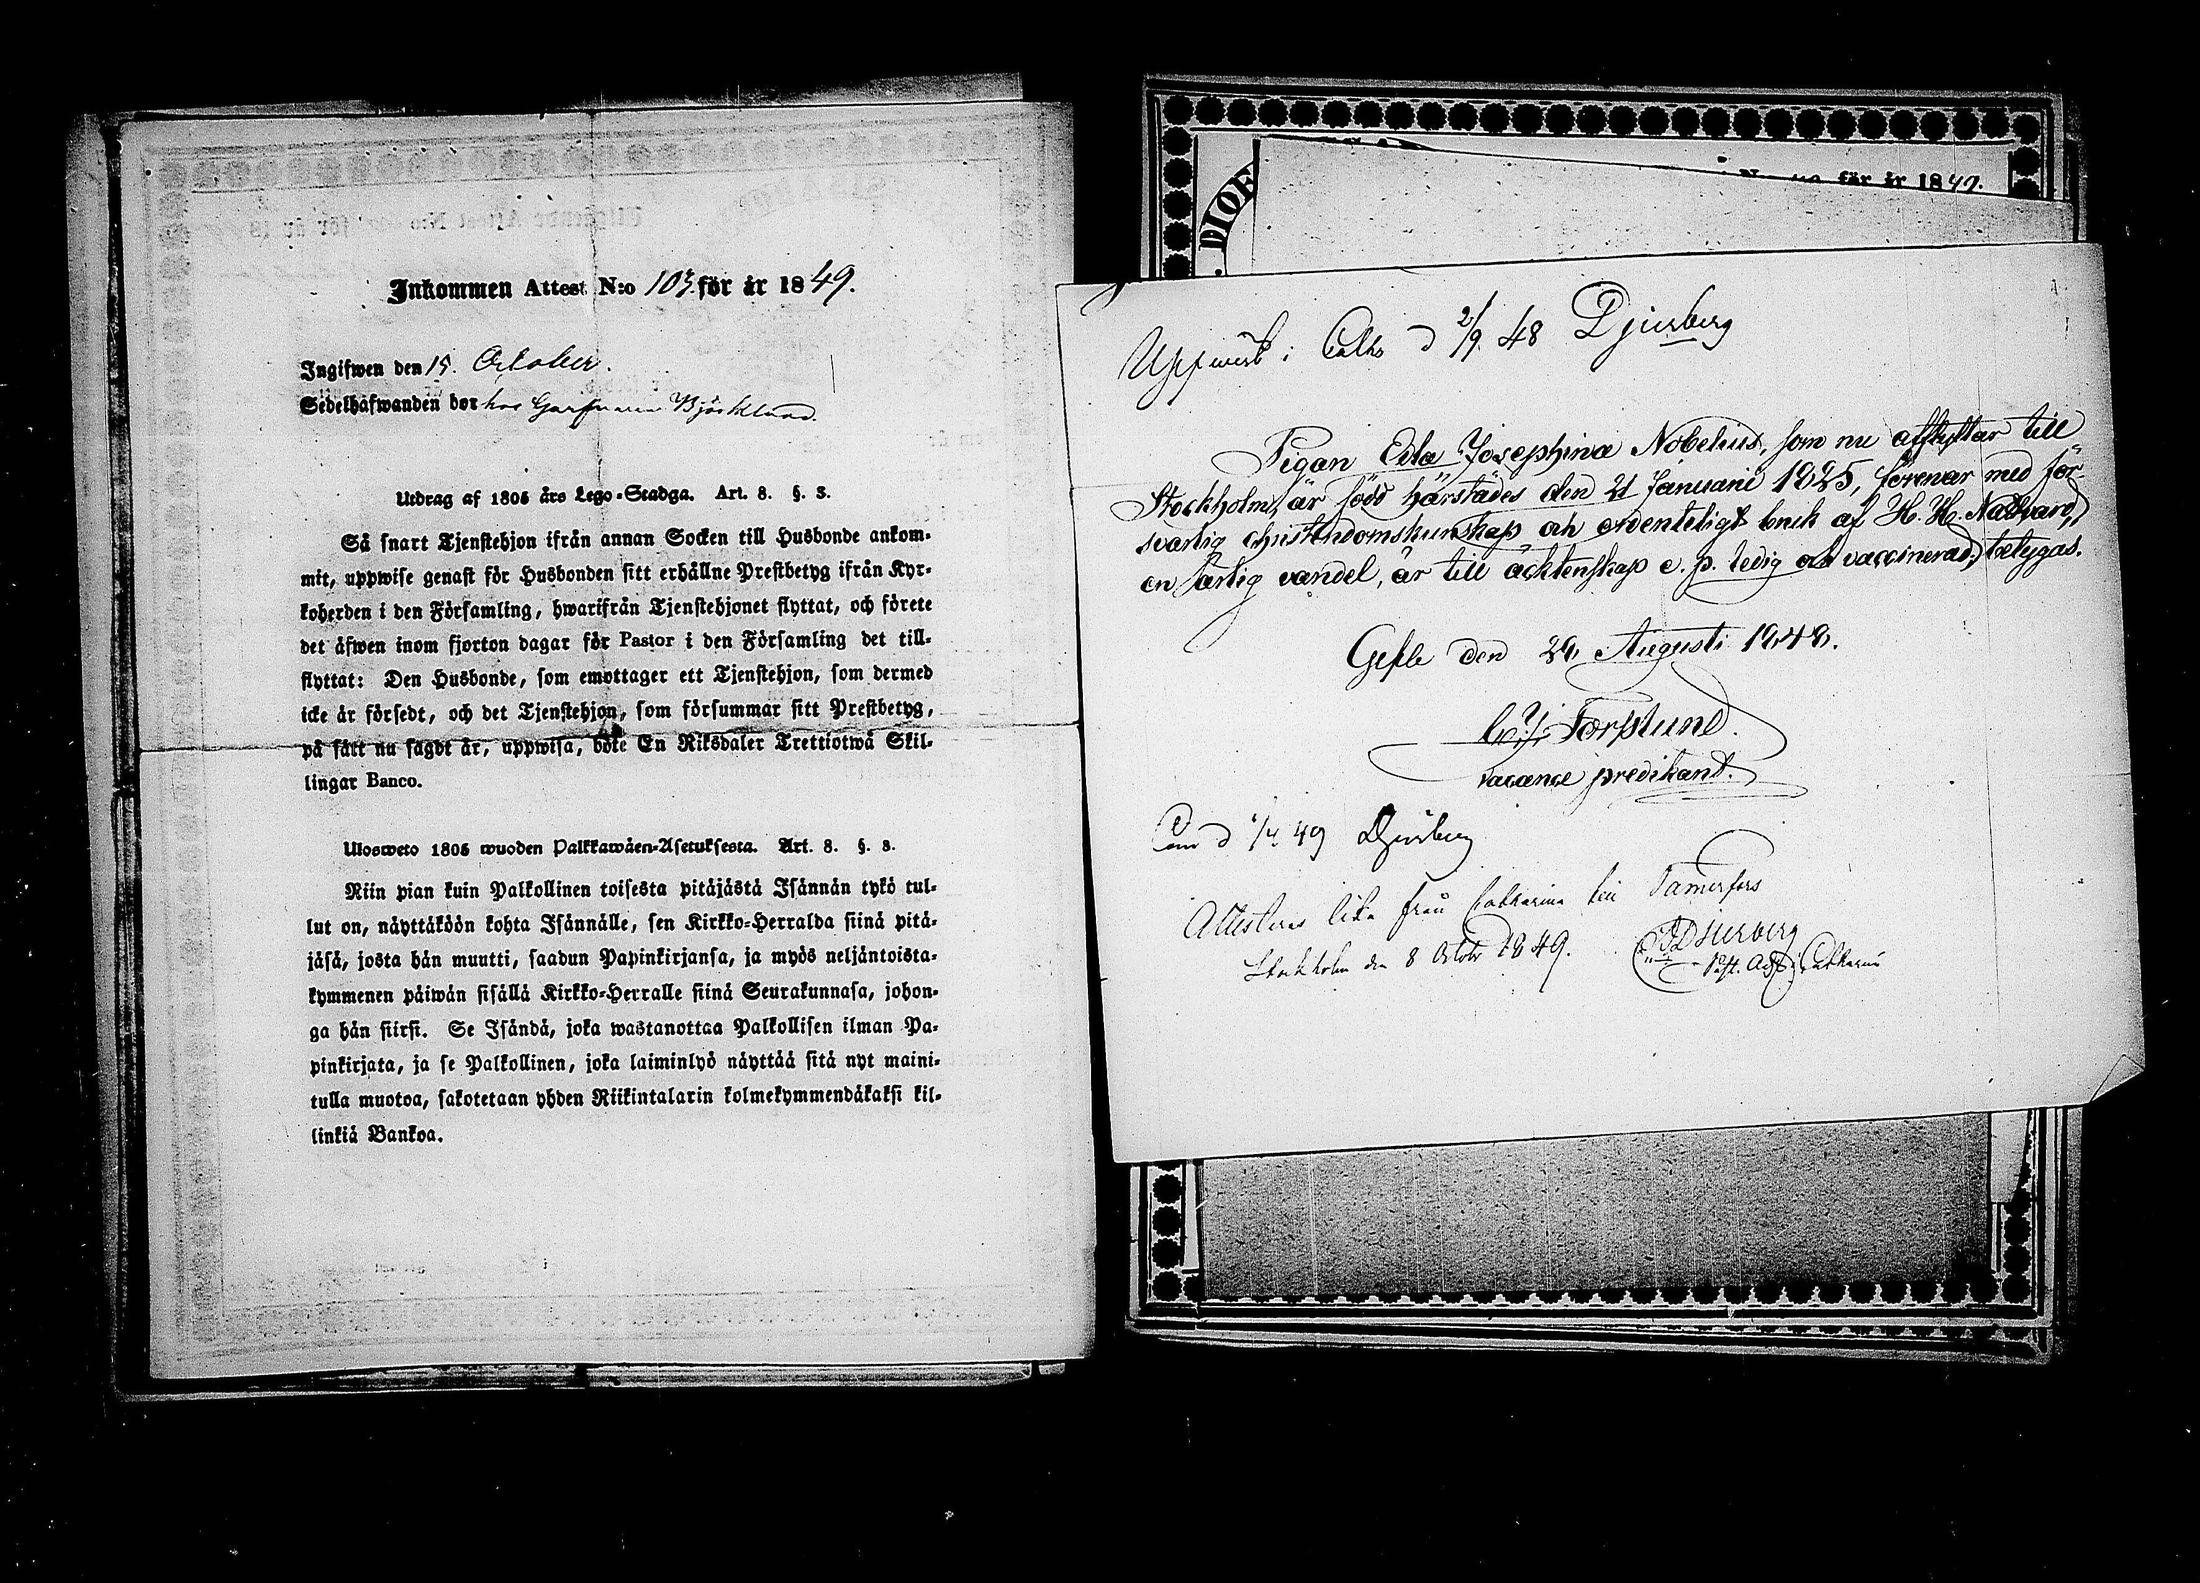 Inkommen Attest N:o 103 för år 1849.
Ingifwen den 15. October.
Sedelhafwanden bor hos Garfvaren Björklund.
Utdrag af 1805 års Lego-Stadga. Art. 8. §. 3.
Så snart Tjenstehjon ifrån annan Socken till Husbonde ankom-
mit, uppwise genast för Husbonden sitt erhållne Prestbetyg ifrån Kyr-
koherden i den Församling, hwarifrån Tjenstehjonet flyttat, och förete
det äfwen inom fjorton dagar för Pastor i den Församling det till-
flyttat: Den Husbonde, som emottager ett Tjenstehjon, som dermed
icke är försedt, och det Tjenstehjon, som försummar sitt Prestbetyg,
på sätt nu sagdt är, uppwisa, böte En Riksdaler Trettiotwå Skil-
lingar Banco.
Ulosweto 1805 wuoden Palkkawäen-Asetuksesta. Art. 8. §. 3.
Niin pian kuin Palkollinen toisesta pitäjästä Isännän tykö tul-
lut on, näyttäköön kohta Isännälle, sen Kirkko-Herralda siinä pitä-
jäsä, josta hän muutti, saadun Papinkirjansa, ja myös neljäntoista-
kymmenen päiwän sisällä Kirkko-Herralle siinä Seurakunnasa, johon-
ga hän siirsi. Se Isändä, joka wastanottaa Palkollisen ilman Pa-
pinkirjata, ja se Palkollinen, joka laiminlyö näyttää sitä nyt maini-
tulla muotoa, sakotetaan yhden Riikintalarin kolmekymmendäkaksi kil-
linkiä Bankoa.
DIOE
för år 1849.
Uppwist i Cath d 2/9. 48 Djurberg
Pigan Edla Josephina Nobelius, som nu afflyttar till
Stockholm, är född härstädes den 21 Januarii 1825, förenar med för-
svarlig christendomskunskap och ordenteligt bruk af H. H. Nattvard,
en ärlig vandel, är till äcktenskap e. p. ledig och vaccinerad, betygas.
Gefle den 28 Augusti 1848.
Forslund.
vacance predikant.
d 1/4 49 Djurberg
Attesteras lika från Catharina till Tamerfors
Stockholm den 8 Octobr 1849. Djurberg
Past. Adj. i Catharina